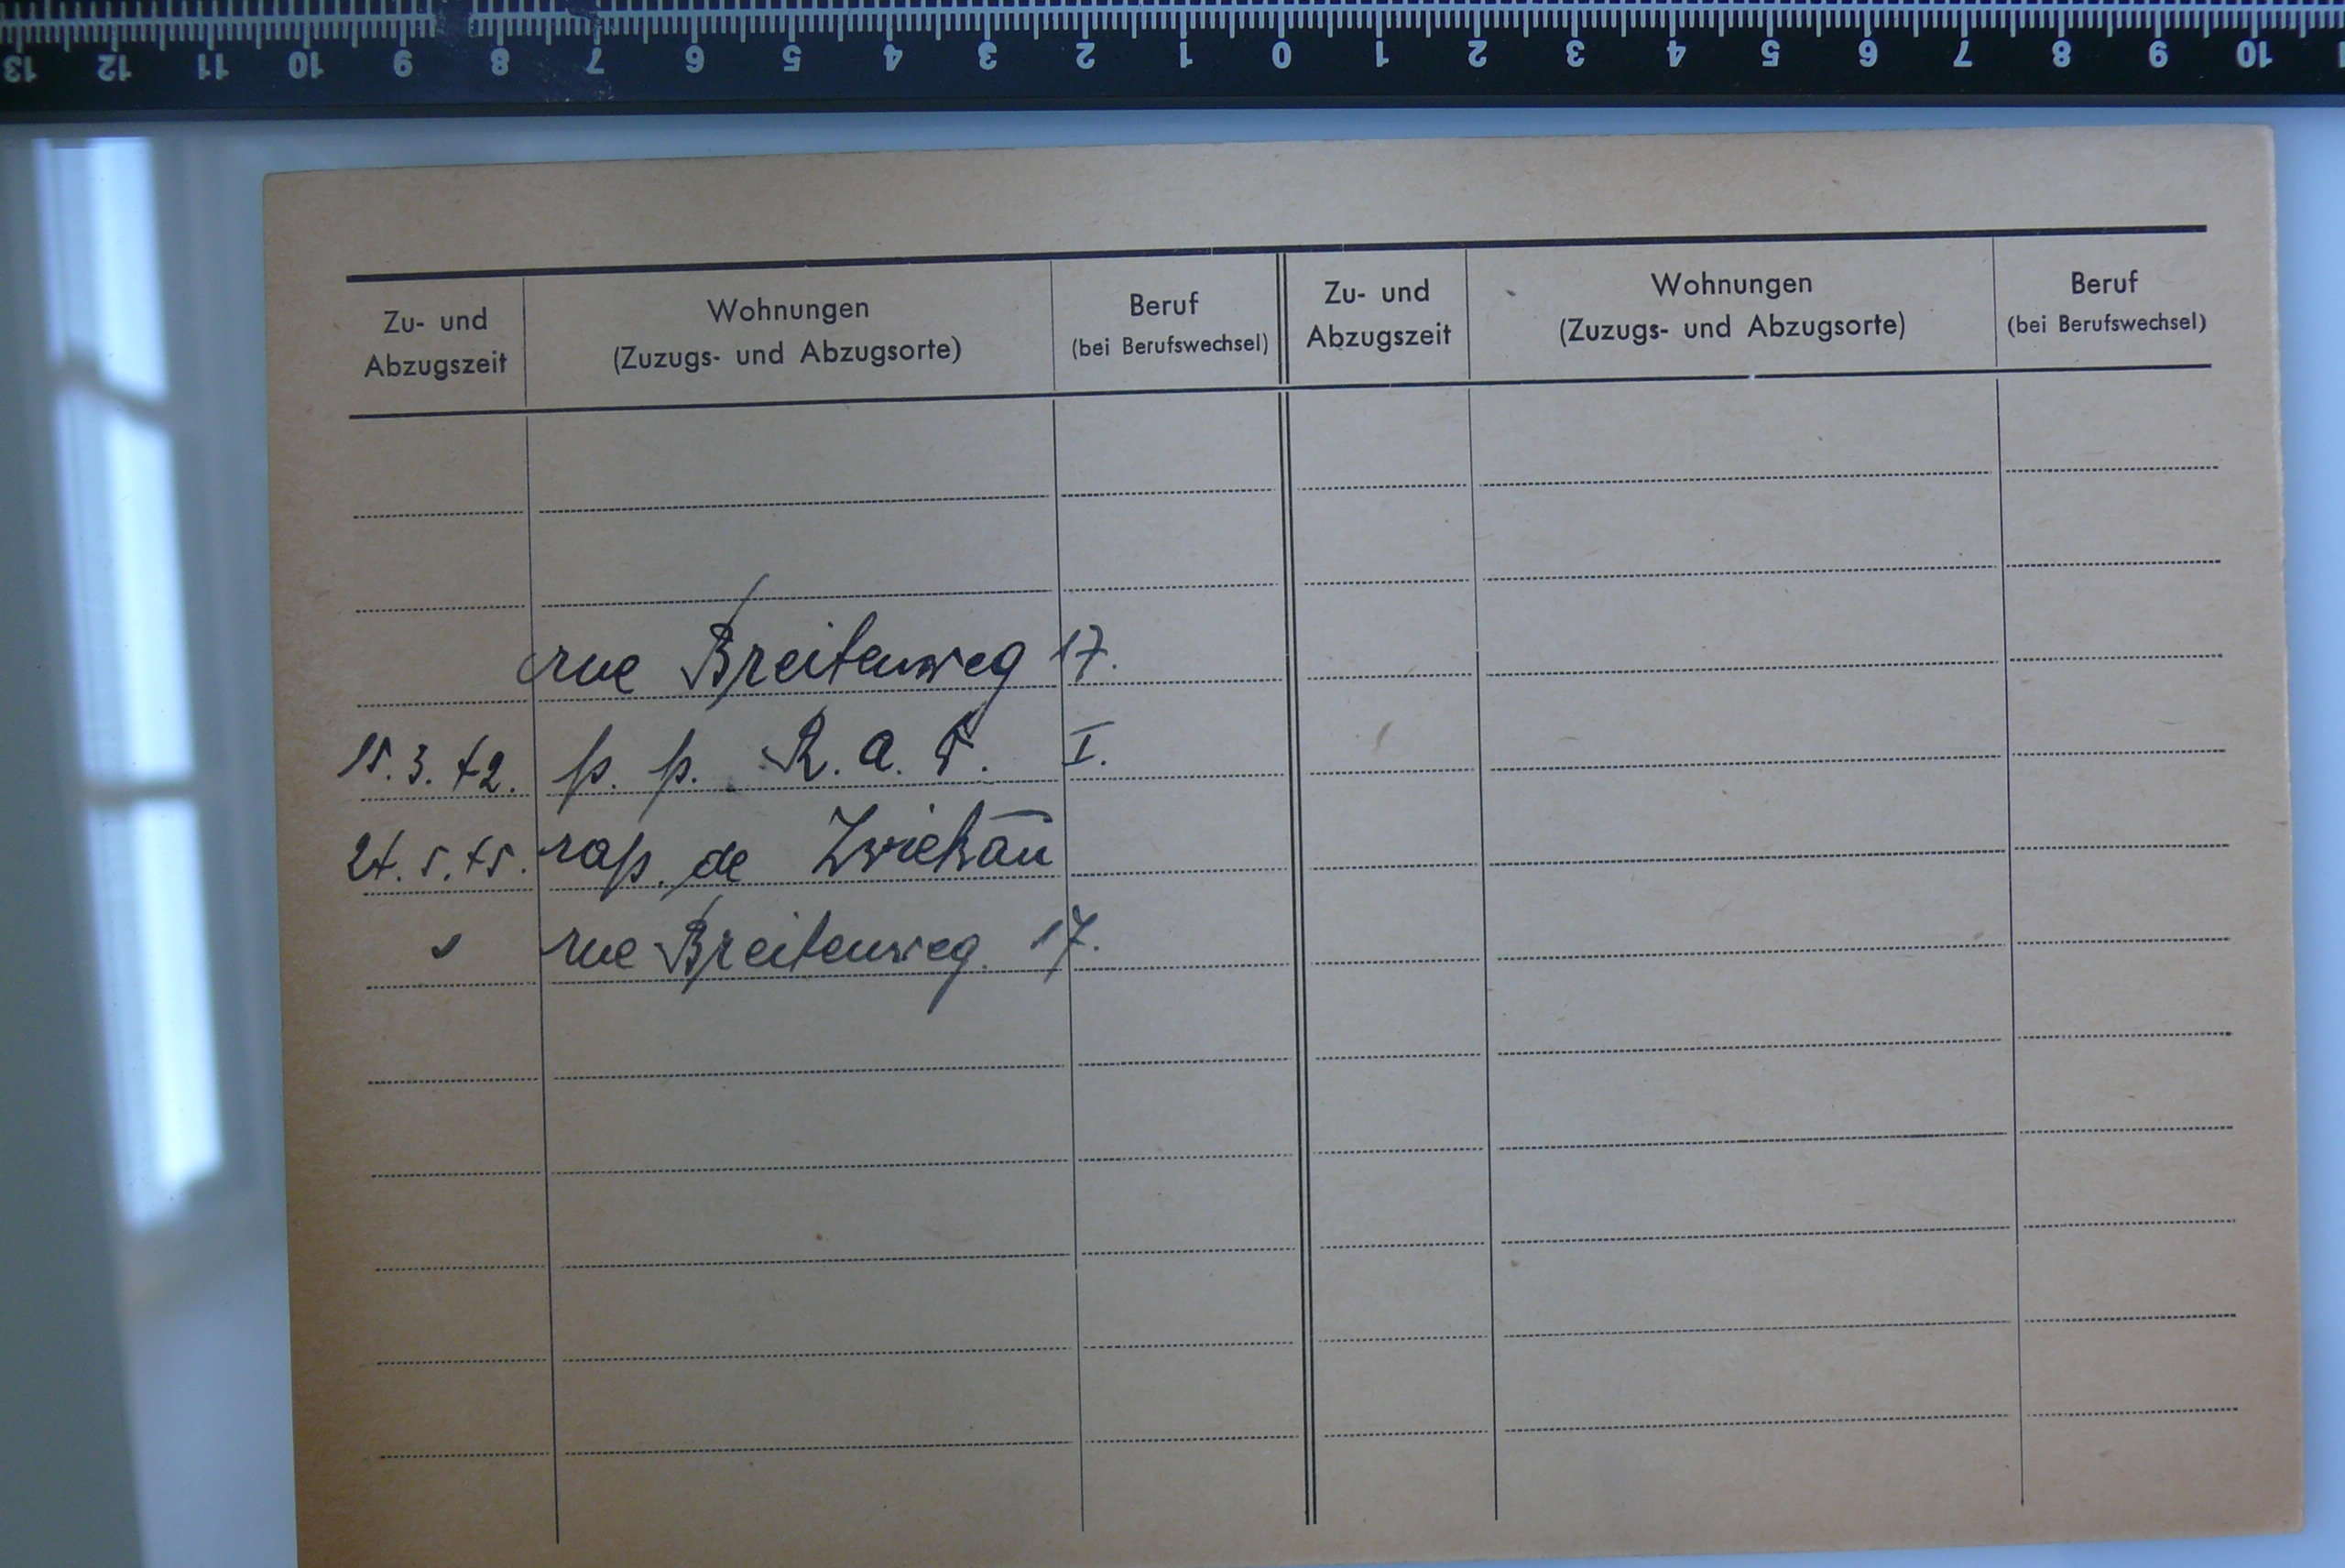 13 12 11 10 9 8 7 6 5 4 3 2 1 0 1 2 3 4 5 6 7 8 9 10
Zu- und
Abzugszeit
Wohnungen
(Zuzugs- und Abzugsorte)
Beruf
(bei Berufswechsel)
Zu- und
Abzugszeit
Wohnungen
(Zuzugs- und Abzugsorte)
Beruf
(bei Berufswechsel)
rue Breitenweg 17.
15.3.42. p. p. R. a. I.
24.5.45. rap. de Zwickau
rue Breitenweg. 17.